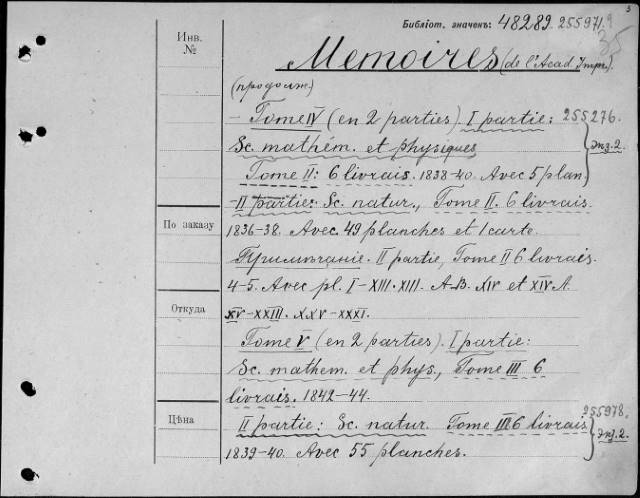 3
Библіот. значенъ: 48289. 255971.
35
Инв.
№
Memoires (de l'Acad Impr.).
(продолж.)
- Tome IV (en 2 parties). I partie: 255276.
Sc. mathém. et physiques
Экз.2.
Tome II: 6 livrais. 1838-40. Avec 5 plan
-II partie: Sc. natur., Tome II. 6 livrais.
По заказу
1836-38. Avec 49 planches et 1 carte.
Примѣчаніе. II partie, Tome II 6 livrais.
4-5. Avec pl. I-XIII. XIII. A.B. XIV et XIV A.
Откуда
XV-XXIII. XXV-XXXI.
Tome V (en 2 parties). I partie:
Sc. mathem. et phys., Tome III 6
livrais. 1842-44.
255978.
Цѣна
II partie: Sc. natur. Tome III 6 livrais
Экз.2.
1839-40. Avec 55 planches.